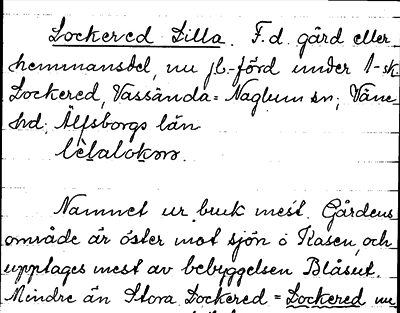 Lockered Lilla. F.d. gård eller
hemmansdel, nu jb-förd under 1-sk.
Lockered, Vassända-Naglum sn, Väne
hd, Älfsborgs län

Namnet ur bruk mest. Gårdens
område är öster mot sjön o Kasen, och
upptages mest av bebyggelsen Blåsut.
Mindre än Stora Lockered = Lockered nu